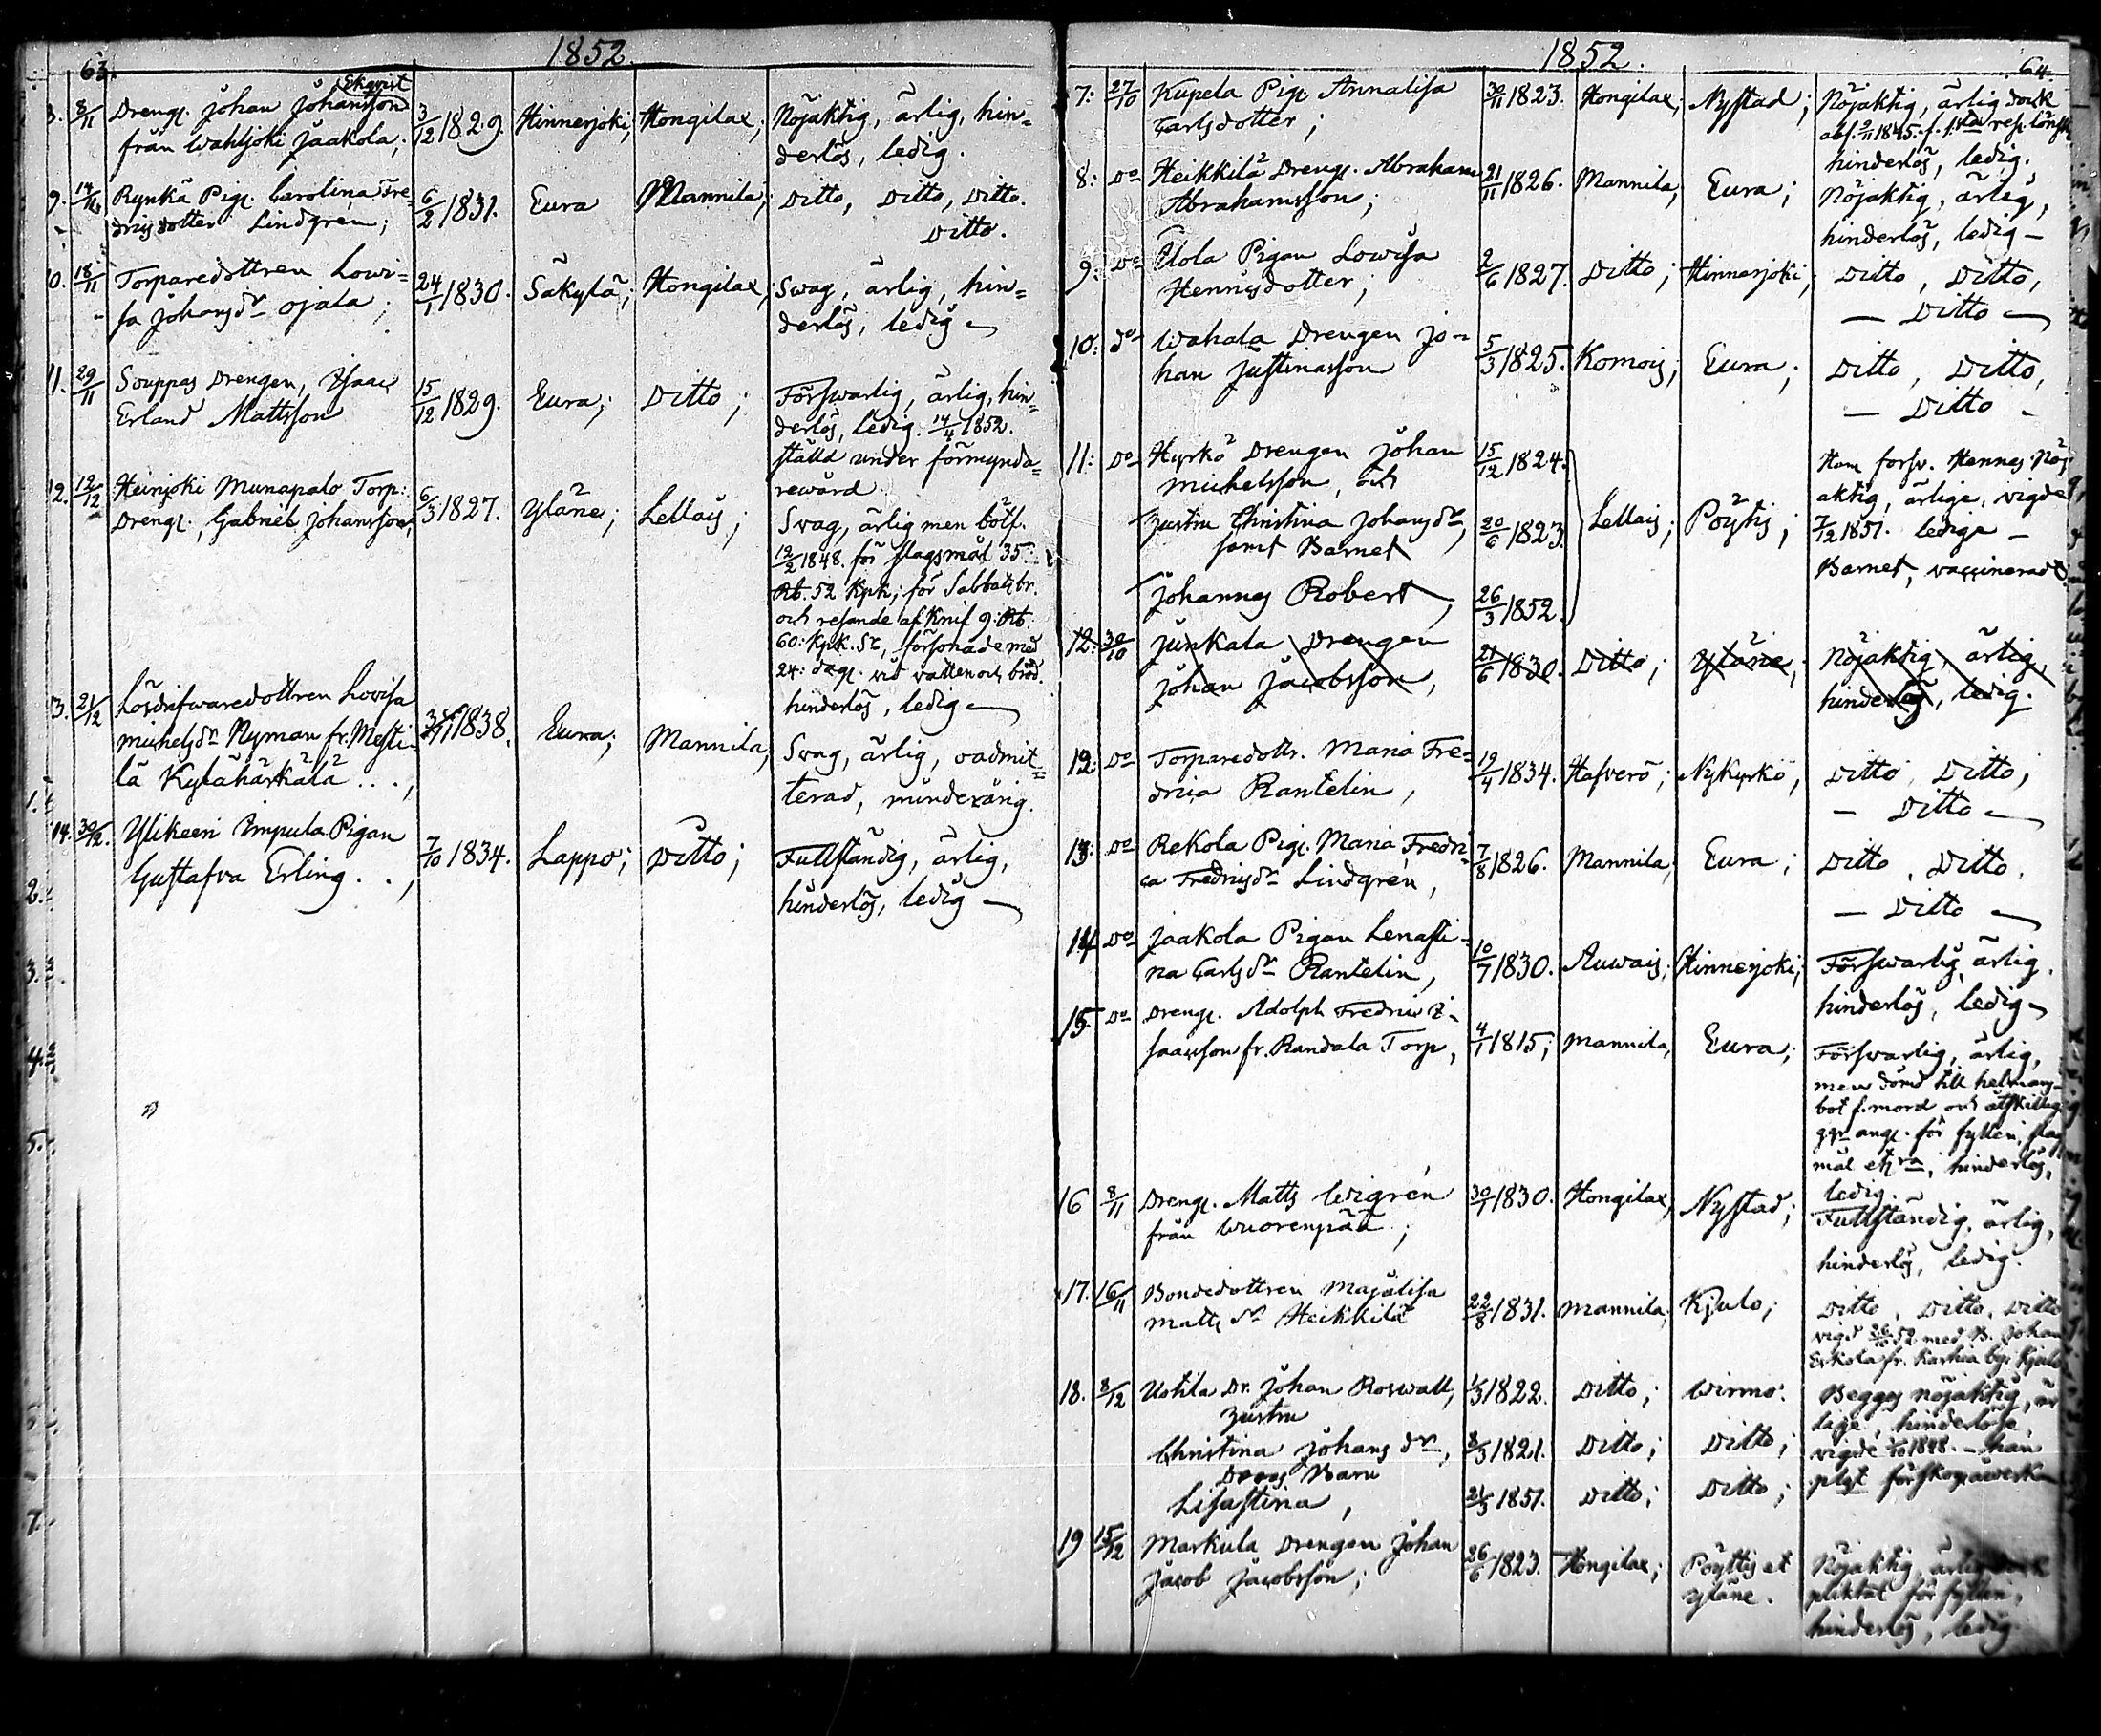 1852.
63.
8. 8/11 Drengen Johan Johansson Ekqvist
från Wahljoki Jaakola; 3/12 1829. Hinnerjoki; Hongilax; Nöjaktig, ärlig, hin=
derlös, ledig.
9. 14/11 Rynkä Pig. Carolina Fre=
dricsdotter Lindgren; 6/2 1831. Eura Mannila; Ditto, Ditto, Ditto.
Ditto.
10. 18/11 Torparedottren Lowi=
sa Johansdr Ojala; 24/1 1830. Säkylä; Hongilax; Swag, ärlig, hin=
derlös, ledig –
11. 29/11 Souppas Drengen, Isaac
Erland Mattsson 15/12 1829. Eura; Ditto; Förswarlig, ärlig, hin=
derlös, ledig. 14/4 1852.
ställd under förmynda=
rewård.
12. 12/12 Heinjoki Munapalo Torp:
Dreng. Gabriel Johansson, 6/3 1827. Yläne; Lellais; Svag, ärlig men bötf.
12/2 1848. för slagsmål 35
Rb. 52 Kpk; för Sabbatsbr.
och resande af Knif 9: Rb.
60: Kpk. Sr, försonade med
24: dag. vid vatten och bröd.
hinderlös, ledig –
13. 21/12 Lösdrifwaredottren Lovisa
Michelsdr Nyman fr. Mesti=
lä Kylähärkälä .., 1838. Eura; Mannila; Svag, ärlig, oadmit=
terad, minderårig.
14. 30/12. Ylikeeri Impula Pigan
Gustafva Erling .., 7/10 1834. Lappo; Ditto; Fullständig, ärlig,
hinderlös, ledig –
1852.
64.
7: 27/10 Kupela Pig. Annalisa
Carlsdotter; 30/11 1823. Hongilax; Nystad; Nöjaktig, ärlig dock
hinderlös, ledig.
8: Do Heikkilä Dreng. Abraham
Abrahamsson; 21/11 1826. Mannila; Eura; Nöjaktig, ärlig,
hinderlös, ledig –
9: Do Ylola Pigan Lowisa
Henricsdotter; 2/6 1827. Ditto; Hinnerjoki; Ditto, Ditto,
– Ditto –
10: do Wahala Drengen Jo=
han Justinasson 5/3 1825. Komois; Eura; Ditto, Ditto,
– Ditto –
11: Do Hyrkö Drengen Johan
Michelsson, och 15/12 1824. Han forsv. Hennes Nöj
aktig, ärlige, vigde
hustru Christina Johansdr, 20/6 1823. Lellais; Pöytis; 7/12 1851. lediga –
samt Barnet
Johannes Robert, 26/3 1852. Barnet, vaccinerad
12: 30/10 Junkala Drengen
Johan Jacobsson, 21/6 1830. Ditto; Yläne; Nöjaktig, ärlig
hinderlös, ledig.
12: Do Torparedottr. Maria Fre=
drica Rantelin, 19/4 1834. Hafverö; Nykyrkö; Ditto, Ditto;
– Ditto –
13: Do Rekola Pig. Maria Fredri=
ca Fredricsdr Lindgrén, 7/8 1826. Mannila; Eura; Ditto, Ditto.
– Ditto –
14 Do Jaakola Pigan Lenasti=
na Carlsdr Rantelin, 10/7 1830. Auwais; Hinnerjoki; Förswarlig, ärlig.
hinderlös, ledig –
15. Do Dreng. Adolph Fredric I=
saacsson fr. Randala Torp, 4/1 1815; Mannila, Eura; Förswarlig, ärlig,
men dömd till helmans=
bot f. mord och åtskillige
ggr ang. för fylleri, slags
mål etzra, hinderlös,
ledig.
16 8/11 Dreng. Matts Wigrén
från Wuorenpää; 30/1 1830. Hongilax; Nystad; Fullständig, ärlig,
hinderlös, ledig.
17. 16/11 Bondedottren Majalisa
Matts dr Heikkilä 22/8 1831. Mannila; Kjulo; Ditto, Ditto, Ditto
vigd 26/12 52 med B. Johan
Eskola fr. Karhia by i Kjulo
18. 8/12 Uotila Dr. Johan Roswall, 1/3 1822. Ditto; Wirmo. Begges nöjaktig, är
hustru lige, hinderlöse,
Christina Johans dr, 8/3 1821. Ditto; Ditto; vigde 1848. – han
Deras Barn
Lisastina, 21/3 1851. Ditto; Ditto; plgt för skogsåwerkan
19 15/12 Markula Drengen Johan
Jacob Jacobsson; 26/6 1823. Hongilax; Pöyttis et
Yläne. Nöjaktig, ärlig dock
pliktat för fylleri,
hinderlös, ledig.